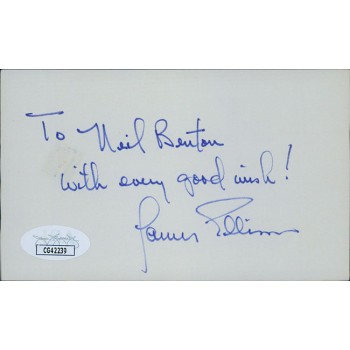 To Neil Benton
with every good wish!
James Ellison
CG42239